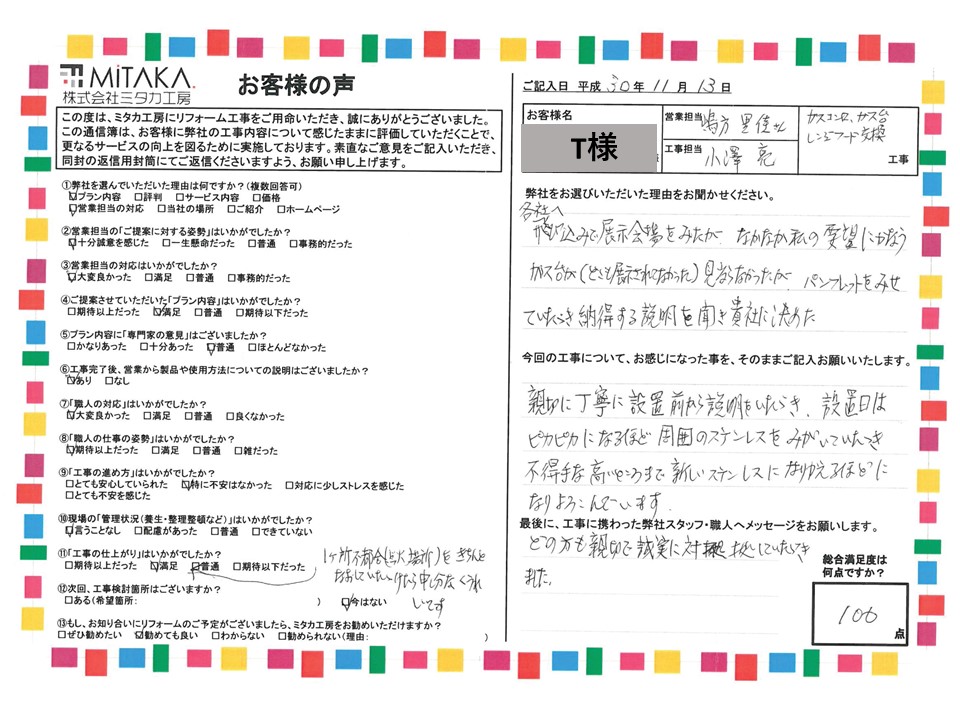 MiTAKA.
株式会社ミタカ工房
お客様の声
この度は、ミタカ工房にリフォーム工事をご用命いただき、誠にありがとうございました。
この通信簿は、お客様に弊社の工事内容について感じたままに評価していただくことで、
更なるサービスの向上を図るために実施しております。素直なご意見をご記入いただき、
同封の返信用封筒にてご返信くださいますよう、お願い申し上げます。
①弊社を選んでいただいた理由は何ですか？（複数回答可）
☑プラン内容 □評判 □サービス内容 □価格
☑営業担当の対応 □当社の場所 □ご紹介 □ホームページ
②営業担当の「ご提案に対する姿勢」はいかがでしたか？
☑十分誠意を感じた □一生懸命だった □普通 □事務的だった
③営業担当の対応はいかがでしたか？
☑大変良かった □満足 □普通 □事務的だった
④ご提案させていただいた「プラン内容」はいかがでしたか？
□期待以上だった ☑満足 □普通 □期待以下だった
⑤プラン内容に「専門家の意見」はございましたか？
□かなりあった □十分あった ☑普通 □ほとんどなかった
⑥工事完了後、営業から製品や使用方法についての説明はございましたか？
☑あり □なし
⑦「職人の対応」はいかがでしたか？
☑大変良かった □満足 □普通 □良くなかった
⑧「職人の仕事の姿勢」はいかがでしたか？
☑期待以上だった □満足 □普通 □雑だった
⑨「工事の進め方」はいかがでしたか？
□とても安心していられた ☑特に不安はなかった □対応に少しストレスを感じた
□とても不安を感じた
⑩現場の「管理状況（養生・整理整頓など）」はいかがでしたか？
☑言うことなし □配慮があった □普通 □できていない
⑪「工事の仕上がり」はいかがでしたか？
□期待以上だった ☑満足 ☑普通 □期待以下だった
1ヶ所不都合(点火場所)をきちんと
なおしていただけたら申し分なくうれ
しいです
⑫次回、工事検討箇所はございますか？
□ある（希望箇所： ） ☑今はない
⑬もし、お知り合いにリフォームのご予定がございましたら、ミタカ工房をお勧めいただけますか？
□ぜひ勧めたい ☑勧めても良い □わからない □勧められない（理由： ）
ご記入日 平成 30年 11月 13日
お客様名
T様
様
営業担当
工事担当 小澤 亮
ガスコンロ、ガス台
レンジフード交換
工事
弊社をお選びいただいた理由をお聞かせください。
各社へ
飛び込みで展示会場をみたが なかなか私の要望にかなう
ガス台が(どこも展示されてなかった)見あたらなかったが パンフレットをみせ
ていただき納得する説明を聞き貴社に決めた
今回の工事について、お感じになった事を、そのままご記入お願いいたします。
親切に丁寧に設置前から説明をいただき、設置日は
ピカピカになるほど周囲のステンレスをみがいていただき
不得手な高いところまで新しいステンレスになりかえるほどに
なりよろこんでいます.
最後に、工事に携わった弊社スタッフ・職人へメッセージをお願いします。
どの方も親切で誠実に対していただき
ました.
総合満足度は
何点ですか？
100
点